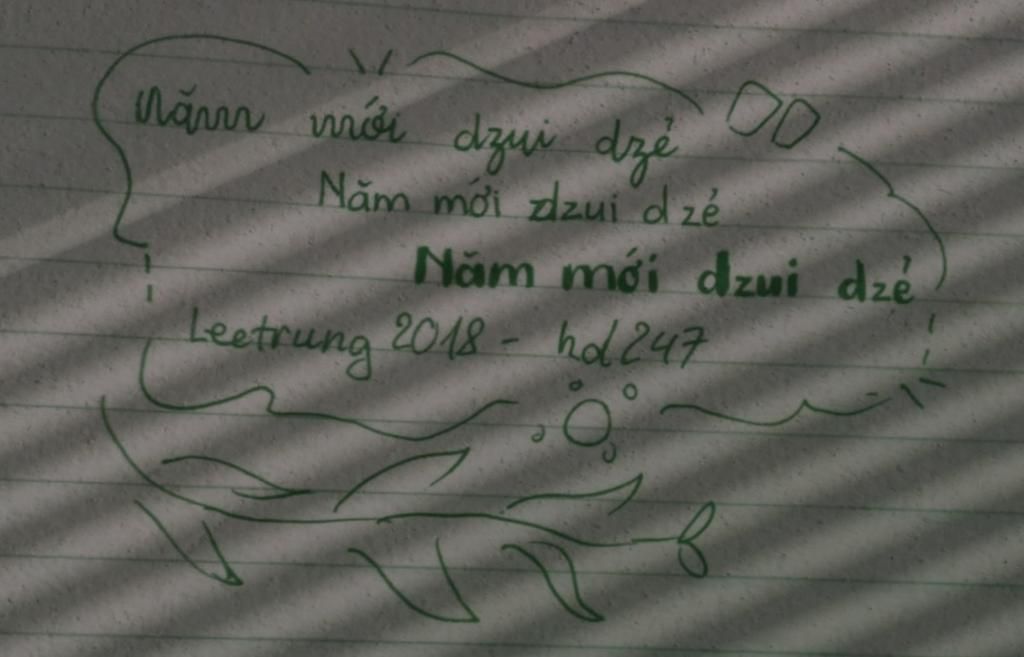 Năm mới dzui dzẻ
Năm mới dzui dzẻ
Năm mới dzui dzẻ
Leetrung 2018 - hd247